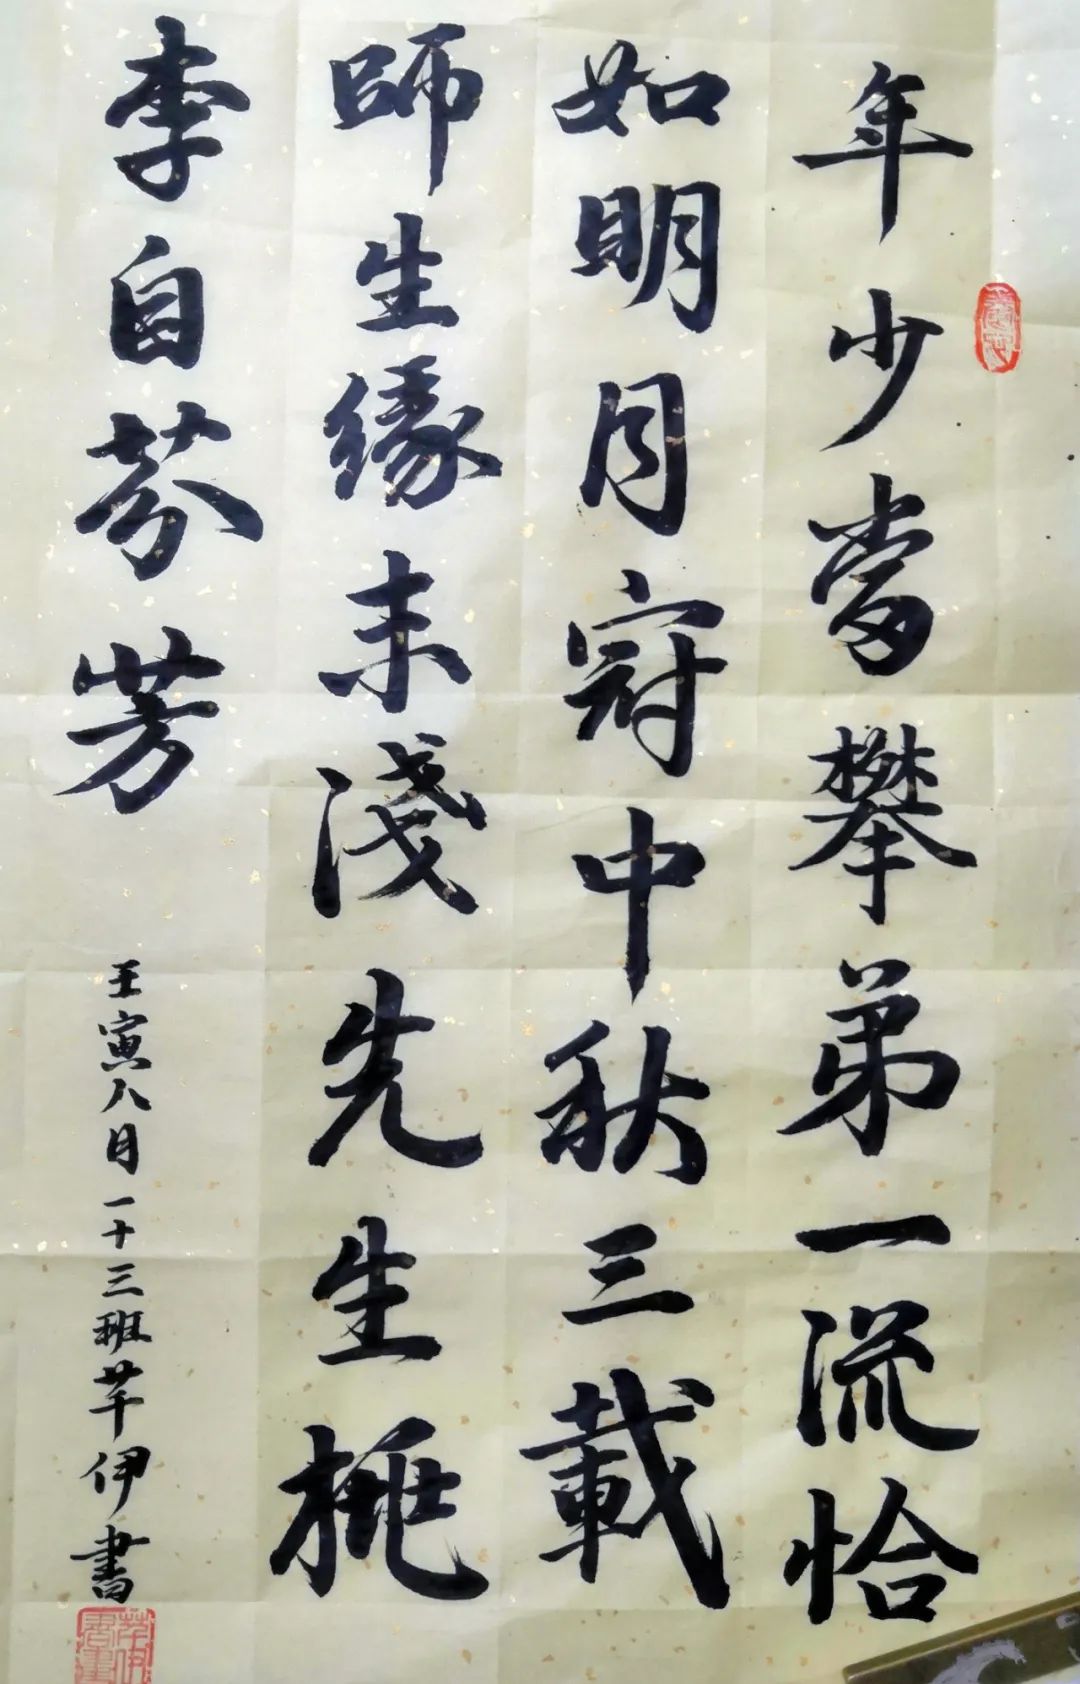 年少當攀弟一流恰
如明月冠中秋三載
師生緣未淺先生桃
李自芬芳
壬寅八月一十三班芊伊書